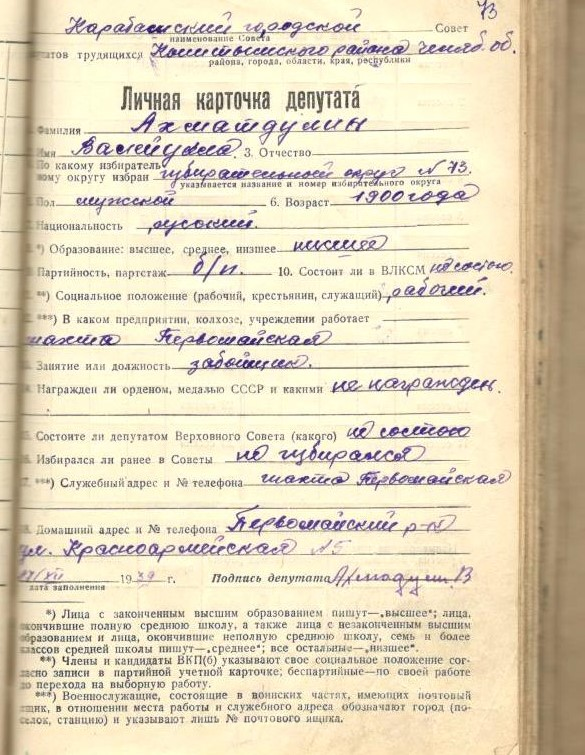 73
Карабашский городской Совет
наименование Совета
татов трудящихся Кыштымского района челяб. об.
района, города, области, края, республики
Личная карточка депутата
Фамилия Ахматдулин
Имя 3. Отчество
По какому избиратель-
ному округу избран избирательной округ N 73.
указывается название и номер избирательного округа
Пол мужской 6. Возраст 1900 года
Национальность русский.
*) Образование: высшее, среднее, низшее низшее
Партийность, партстаж б/п. 10. Состоит ли в ВЛКСМ не состою.
**) Социальное положение (рабочий, крестьянин, служащий) рабочий.
***) В каком предприятии, колхозе, учреждении работает
шахта Первомайская
Занятие или должность забойщик.
4. Награжден ли орденом, медалью СССР и какими не награжден.
5. Состоите ли депутатом Верховного Совета (какого) не состою
6. Избирался ли ранее в Советы не избирался
7. ***) Служебный адрес и № телефона шахта Первомайская
8. Домашний адрес и № телефона Первомайский р-к
ул. Красноармейская N5
/XII 1939 г. Подпись депутата
дата заполнения
*) Лица с законченным высшим образованием пишут—„высшее“; лица,
окончившие полную среднюю школу, а также лица с незаконченным высшим
образованием и лица, окончившие неполную среднюю школу, семь и более
классов средней школы пишут—„среднее“; все остальные—„низшее“.
**) Члены и кандидаты ВКП(б) указывают свое социальное положение сог-
ласно записи в партийной учетной карточке; беспартийные—по своей работе
до перехода на выборную работу.
***) Военнослужащие, состоящие в воинских частях, имеющих почтовый
ящик, в отношении места работы и служебного адреса обозначают город (по-
селок, станцию) и указывают лишь № почтового ящика.